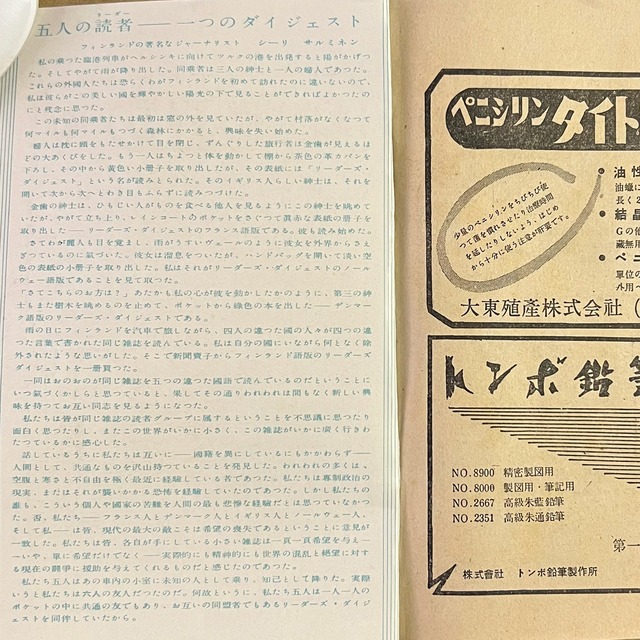 リーダー
五人の読者――一つのダイジェスト
フィンランドの著名なジャーナリスト シーリ サルミネン
私の乗つた臨港列車がヘルシンキに向けてツルクの港を出発すると陽がかげつ
た。そしてやがて雨が降り出した。同乗者は三人の紳士と一人の婦人であつた。
これらの外國人たちは恐らくわがフィンランドを初めて訪れたのに違いないので、
私は彼らがこの美しい國を輝やかしい陽光の下で見ることができればよかつたの
にと残念に思つた。
この未知の同乗者たちは最初は窓の外を見ていたが、やがて村落がなくなつて
何マイルも何マイルもつづく森林にかかると、興味を失い始めた。
婦人は枕に頭をもたせかけて目を閉じ、ずんぐりした旅行者は金歯が見えるほ
どの大あくびをした。もう一人はちよつと体を動かして棚から茶色の革カバンを
下ろし、その中から黄色い小册子を取り出したが、その表紙には「リーダーズ・
ダイジェスト」という名が読みとられた。そのイギリス人らしい紳士は、それを
開いて次から次へとわき目もふらずに読みつづけた。
金歯の紳士は、ひもじい人がものを食べる他人を見るようにこの紳士を眺めて
いたが、やがて立ち上り、レインコートのポケットをさぐつて眞赤な表紙の册子を
取り出した――リーダーズ・ダイジェストのフランス語版である。彼も読み始めた。
さてわが麗人も目を覚まし、雨がうすいヴェールのように彼女を外界からさえ
ぎつているのに氣づいた。彼女は溜息をついたが、ハンドバッグを開いて淡い空
色の表紙の小册子を取り出した。私はそれがリーダーズ・ダイジェストのノール
ウェー語版であることを見て取つた。
「さてこちらのお方は？」あたかも私の心が彼を動かしたかのように、第三の紳
士もまた樹木を眺めるのを止めて、ポケットから綠色の本を出した――デンマー
ク語版のリーダーズ・ダイジェストである。
雨の日にフィンランドを汽車で旅しながら、四人の違つた國の人々が四つの違
つた言葉で書かれた同じ雑誌を読んでいる。私は自分の國にいながら何となく除
外されたような思いがした。そこで新聞賣子からフィンランド語版のリーダーズ
ダイジェストを一册買つた。
一同はおのおのが同じ雑誌を五つの違つた國語で読んでいるのだということに
いつ氣づくかしらと思つていると、果してその通りわれわれは間もなく新しい興
味を持つてお互い同志を見るようになつた。
私たちは皆が同じ雑誌の読者グループに属するということを不思議に思つたり
面白く思つたりし、またこの世界がいかに小さく、この雑誌がいかに廣く行きわ
たつているかに感心した。
話しているうちに私たちは互いに――國籍を異にしているにもかかわらず――
人間として、共通なものを沢山持つていることを発見した。われわれの多くは、
空腹と寒さと不自由を極く最近に経験している者であつた。私たちは專制政治の
現実、またはそれが襲いかかる恐怖を経験していたのであつた。しかし私たちの
誰も、こういう個人や國家の苦難を人間の最も悲惨な経験だとは思つていなかつ
た。否、私たち――フランス人とデンマーク人とイギリス人とノールウェー人、
そして私――は皆、現代の最大の敵こそは希望の喪失であるということに意見が
一致した。私たちは皆、各自が手にしている小さい雑誌は一頁一頁希望を与え―
―いや、單に希望だけでなく――実際的にも精神的にも世界の混乱と絶望に対す
る現在の闘爭に援助を与えてくれるものだと感じたのであつた。
私たち五人はあの車内の小室に未知の人として乗り、知己として降りた。実際
いうと私たちは六人の友人だつたのだ。何故というに、私たち五人は一人一人の
ポケットの中に共通の友でもあり、お互いの同盟者でもあるリーダーズ・ダイジ
ェストを同伴していたから。
ペニシリンダイト
少量のペニシリンをちびちび使
つて菌を慣れさせたり治療時間
を延したりしないよう、はじめ
から十分に使う注意が肝要です。
● 油性
油蠟に
長く2
● 結晶
Gの他
蔵無用
● ペニ
單位の
外用へ
大東殖產株式会社（
トンボ鉛筆
NO.8900 精密製図用
NO.8000 製図用・筆記用
NO.2667 高級朱藍鉛筆
NO.2351 高級朱通鉛筆
第一
株式會社 トンボ鉛筆製作所